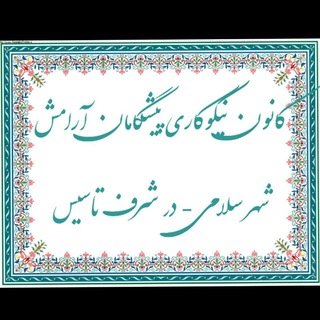 کانون نیکوکاری پیشگامان آرامش
شهر سلامی - در شرف تاسیس